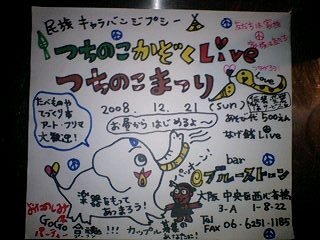 民族キャラバンジプシー
つちのこかぞくLive
つちのこまつり
Love
2008. 12. 21 (sun)
お昼からはじめるよ〜
たべものや
てづくり
アート・フリマ
大歓迎!
あせい代 500えん
なげ銭Live
bar
ブルーストーン
楽器をもって
あつまろう!
大阪 中央区西心斎橋
1-8-22
3-A
Tel
FAX 06-6251-1185
Go Go
合魂!!!
カップル
パーティー